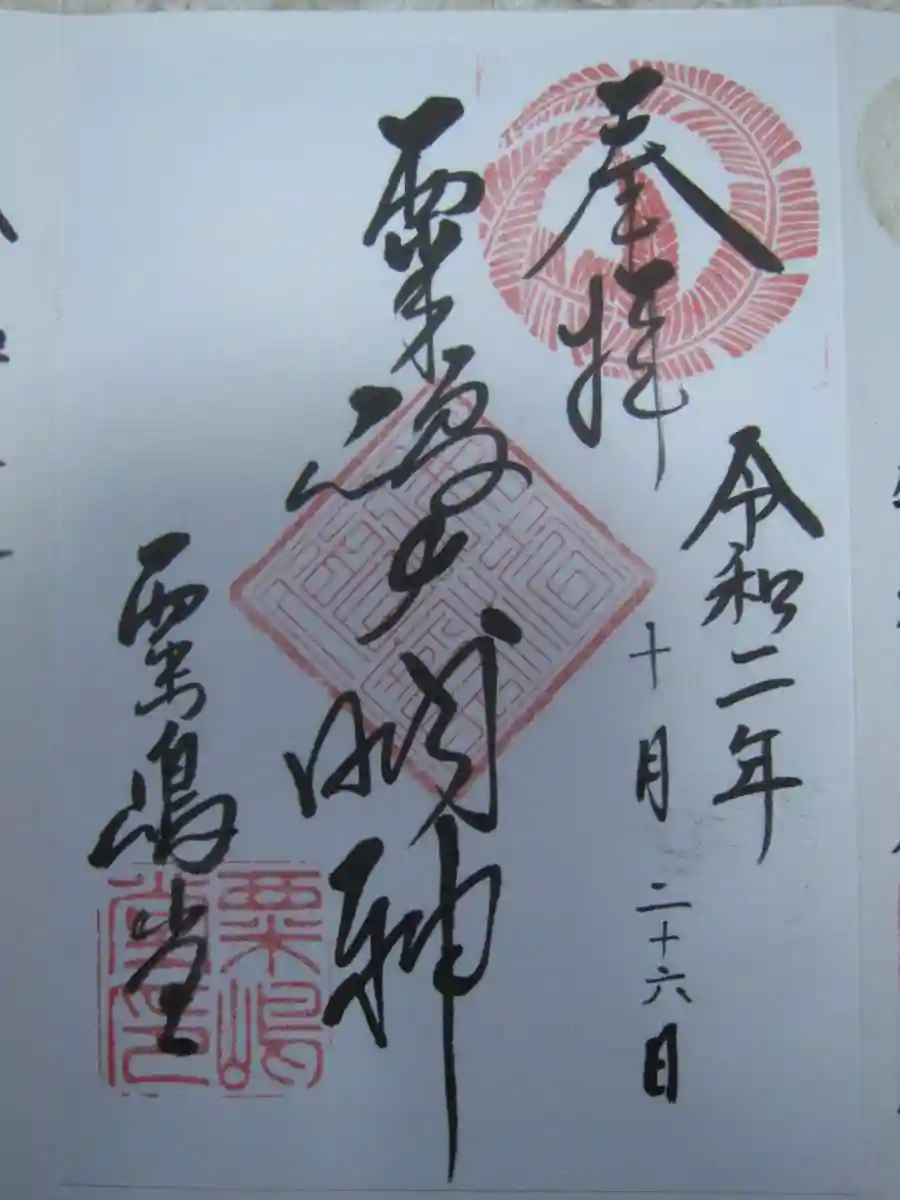 奉拝
令和二年
十月二十六日
粟嶋大明神
粟嶋堂
粟嶋
堂印